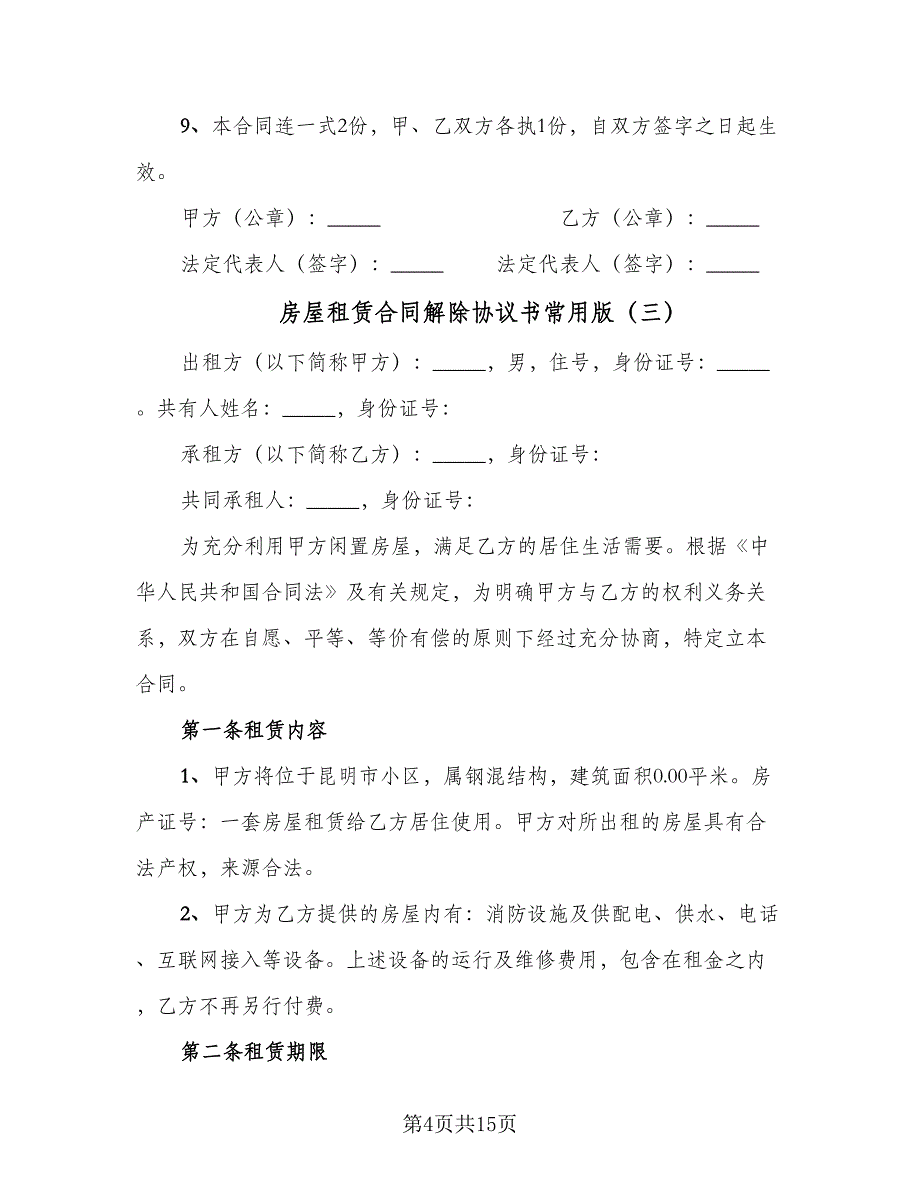 9、本合同连一式2份，甲、乙双方各执1份，自双方签字之日起生
效。
甲方（公章）：_____ 乙方（公章）：_____
法定代表人（签字）：_____ 法定代表人（签字）：_____
房屋租赁合同解除协议书常用版（三）
出租方（以下简称甲方）：_____，男，住号，身份证号：_____
。共有人姓名：_____，身份证号：
承租方（以下简称乙方）：_____，身份证号：
共同承租人：_____，身份证号：
为充分利用甲方闲置房屋，满足乙方的居住生活需要。根据《中
华人民共和国合同法》及有关规定，为明确甲方与乙方的权利义务关
系，双方在自愿、平等、等价有偿的原则下经过充分协商，特定立本
合同。
第一条租赁内容
1、甲方将位于昆明市小区，属钢混结构，建筑面积0.00平米。房
产证号：一套房屋租赁给乙方居住使用。甲方对所出租的房屋具有合
法产权，来源合法。
2、甲方为乙方提供的房屋内有：消防设施及供配电、供水、电话
、互联网接入等设备。上述设备的运行及维修费用，包含在租金之内
，乙方不再另行付费。
第二条租赁期限
第4页共15页